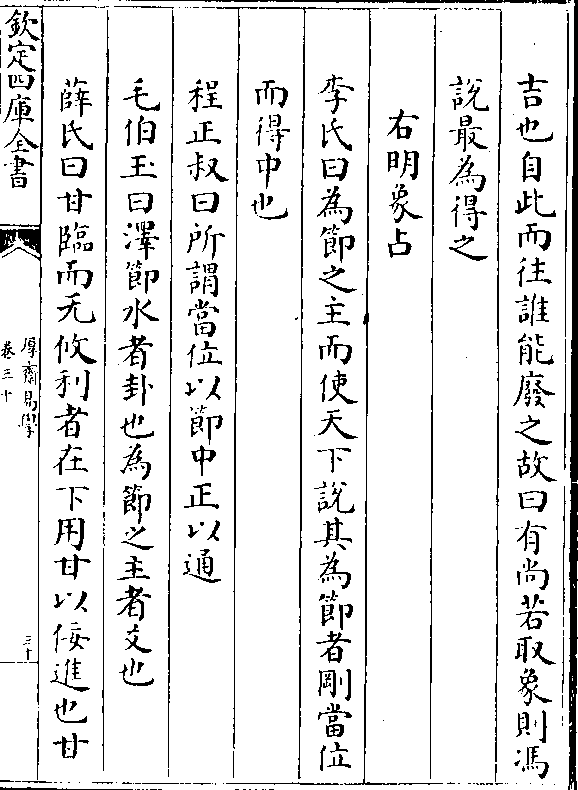 吉也自此而往誰能廢之故曰有尚若取象則馮
說最為得之
右明象占
李氏曰為節之主而使天下說其為節者剛當位
而得中也
程正叔曰所謂當位以節中正以通
毛伯玉曰澤節水者卦也為節之主者爻也
薛氏曰甘臨而无攸利者在下用甘以佞進也甘
欽定四庫全書
厚齋易學
卷三十
三十